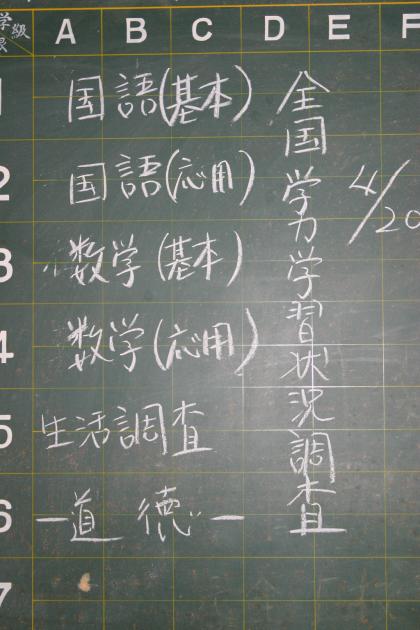 学級
A B C D E F
1 国語(基本)
2 国語(応用)
3 数学(基本)
4 数学(応用)
5 生活調査
6 ー道徳ー
7
全国学力学習状況調査
4/20